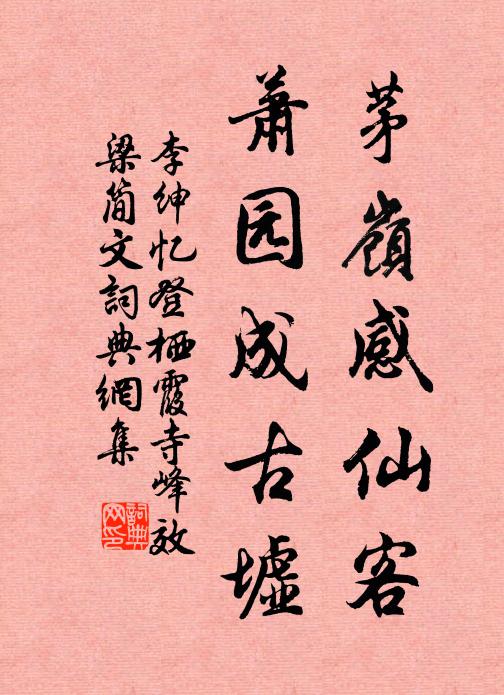 茅嶺感仙客
萧园成古墟
李绅忆登栖霞寺峰效
梁简文詞典網集
詞典网印